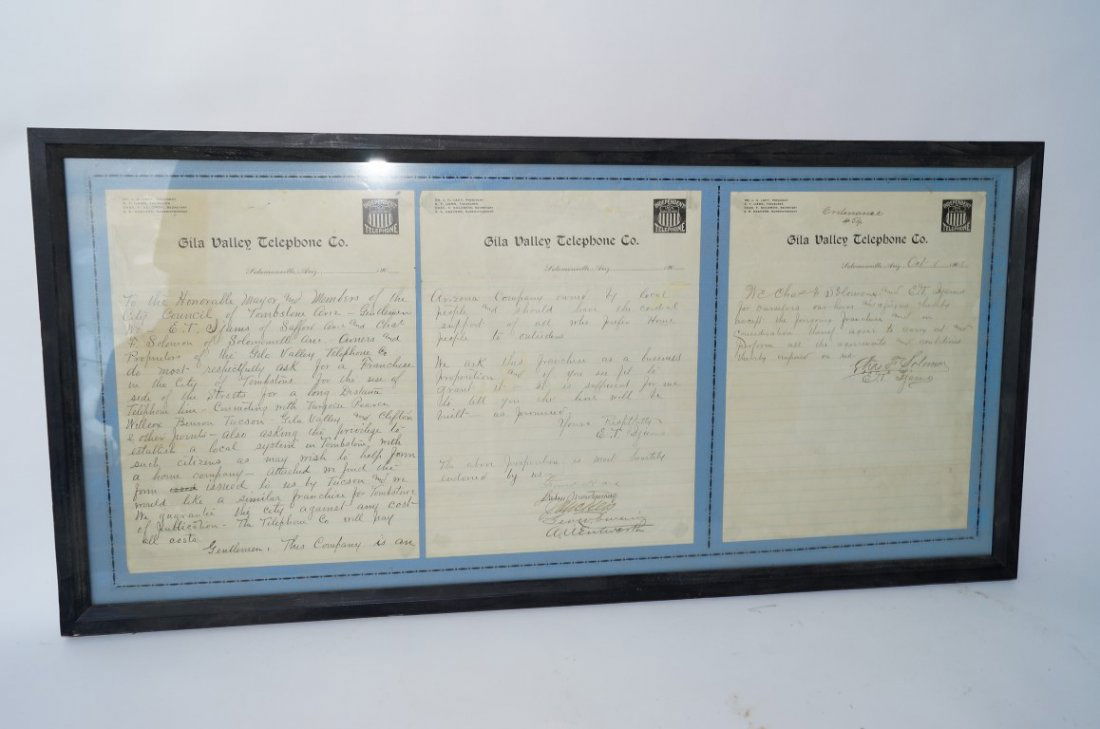 INDEPENDENT
TELEPHONE
Gila Valley Telephone Co.
Solomonville, Ariz., 190
To the Honorable Mayor and Members of the
City Council of Tombstone Ariz - Gentlemen
We - E.T. Ijams of Safford Ariz and Chas
F. Solomon of Solomonville Ariz. Owners and
Proprietors of the Gila Valley Telephone Co
do most respectfully ask for a Franchise
in the City of Tombstone for the use of
side of the Streets for a long Distance
Telephone line - Connecting with Turquoise Pearce
Willcox Benson Tucson Gila Valley and Clifton
& other points - Also asking the privilege to
establish a local system in Tombstone, with
such citizens as may wish to help form
a home company - Attached we find the
form issued to us by Tucson and we
would like a similar franchise for Tombstone
We guarantee the city against any cost
of publication - The Telephone Co will pay
all costs.
Gentlemen, This Company is an
INDEPENDENT
TELEPHONE
Gila Valley Telephone Co.
Solomonville, Ariz., 190
Arizona Company owned by local
people and should have the cordial
support of all who prefer Home
people to outsiders
We ask this franchise as a business
proposition and if you see fit to
grant it - it is sufficient for me
to tell you the line will be
built - as promised.
Yours Respectfully
E.T. Ijams
The above proposition is most heartily
endorsed by us
A. Wentworth
INDEPENDENT
TELEPHONE
Ordinance
Gila Valley Telephone Co.
Solomonville, Ariz., Oct 190
We Chas F Solomon and E.T. Ijams
for ourselves our heirs and assigns hereby
accept the foregoing franchise and in
consideration thereof agree to carry out and
perform all the covenants and conditions
thereby imposed on us.
Chas F Solomon
E.T. Ijams